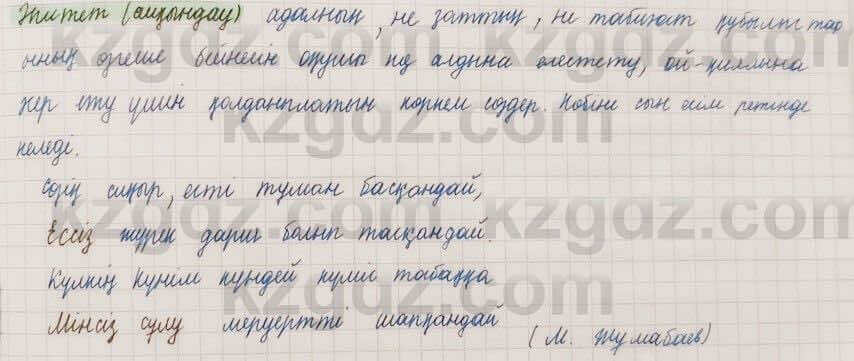 Эпитет (айқындау) адамның, не заттың, не табиғат құбылыстар
ының өзгеше бейнесін оқушы ның алдына елестету, ой-қиялына
әсер ету үшін қолданылатын көркем сөздер. Көбіне сын есім ретінде
келеді.
Сөзің сиқыр, есті тұман басқандай,
Ессіз жүрек дария болып тасқандай.
Күлкің күнім күндей күміс табаққа
Мінсіз сұлу меруертті шашқандай
(М. Жумабаев)
kzgdz.com